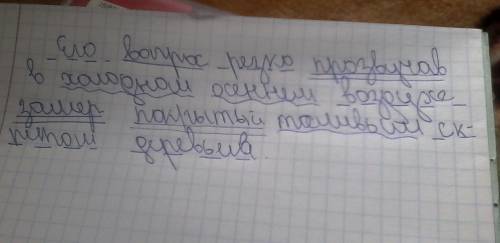 Его вопрос резко прозвучав
в холодном осеннем воздухе
замер покрытый тоскливым ск-
рипом деревьев.